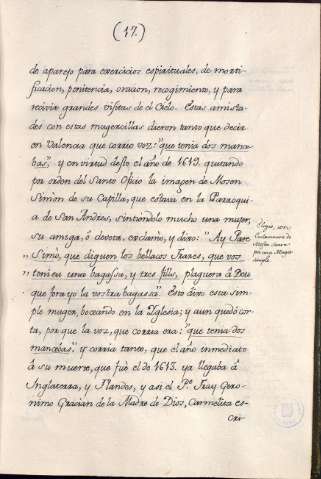 (17.)
de aparejo para exercicios espirituales, de morti-
ficacion, penitencia, oracion, recogimiento, y para
recivir grandes visitas de el Cielo. Estas amista-
des con estas mugercillas dieron tanto que decir
en Valencia que corrio voz: "que tenia dos mance-
bas": y en virtud desto el año de 1612, quitando
por orden del Santo Oficio la imagen de Mosen
Simon de su Capilla, que estava en la Parroquia
de San Andres, sintiendolo mucho una muger,
su amiga, ô devota, exclamò, y dixo: "Ay Pare
Simò, que diguen los bellacos Frares, que vos
tenieu una bagassa, y tres fills, plaguera â Deu
que fora yo la vostra bagassa". Esto dixo esta sim-
ple muger, voceando en la Yglesia; y aun quedò cor-
ta, por que la voz, que corria era: "que tenia dos
mancebas": y corria tanto, que el año inmediato
â su muerte, que fuè el de 1613. ya llegaba â
Inglaterra, y Flandes, y asi el P.e Fray Gero-
nimo Gracian de la Madre de Dios, Carmelita es-
cri-
de
muger